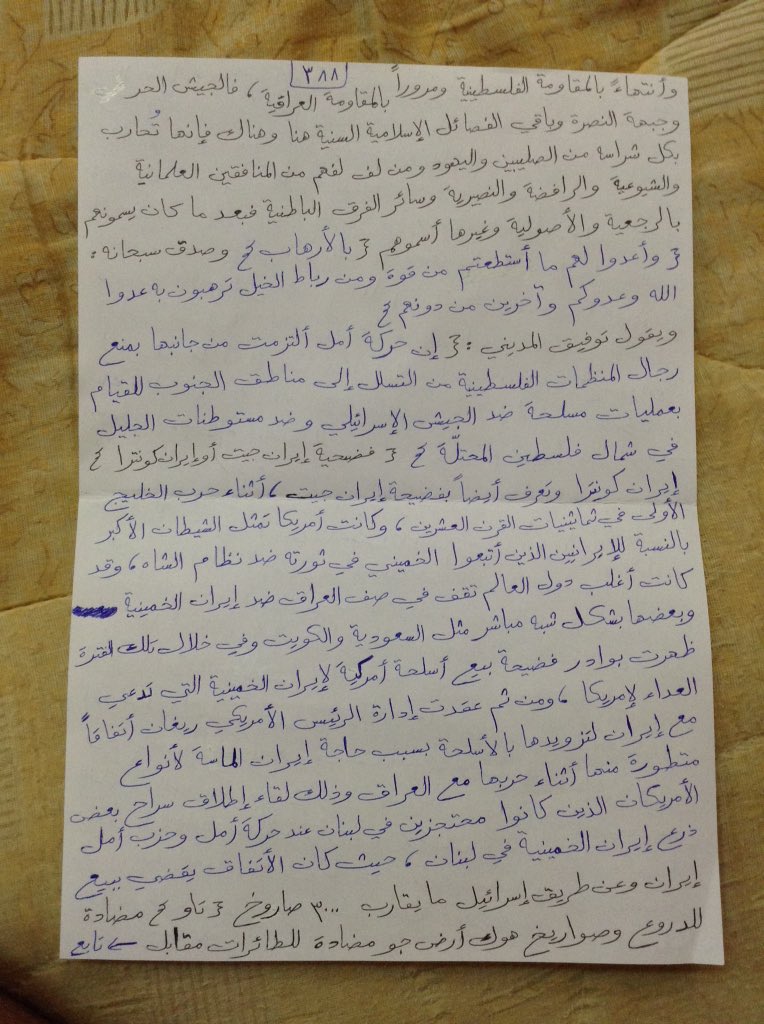 ٣٨٨
وأنتهاءً بالمقاومة الفلسطينية ومروراً بالمقاومة العراقية ، فالجيش الحر
وجبهة النصرة وباقي الفصائل الإسلامية السنية هنا وهناك فإنها تُحارب
بكل شراسه من الصليبين واليهود ومن لف لفهم من المنافقين العلمانية
والشيوعية والرافضة والنصيرية وسائر الفرق الباطنية فبعد ما كان يسمونهم
بالرجعية والأصولية وغيرها أسموهم { بالأرهاب } وصدق سبحانه :
{ وأعدوا لهم ما أستطعتم من قوة ومن رباط الخيل ترهبون به عدوا
الله وعدوكم وآخرين من دونهم }
ويقول توفيق المديني : { إن حركة أمل ألتزمت من جانبها بمنع
رجال المنظمات الفلسطينية من التسلل إلى مناطق الجنوب للقيام
بعمليات مسلحة ضد الجيش الإسرائيلي وضد مستوطنات الجليل
في شمال فلسطين المحتلّة } { فضيحية إيران جيت أو إيران كونترا }
إيران كونترا وتعرف أيضاً بفضيحة إيران جيت ، أثناء حرب الخليج
الأولى في ثمانينيات القرن العشرين ، وكانت أمريكا تمثل الشيطان الأكبر
بالنسبة للإيرانيين الذين أتبعوا الخميني في ثورته ضد نظام الشاه ، وقد
كانت أغلب دول العالم تقف في صف العراق ضد إيران الخمينية
وبعضها بشكل شبه مباشر مثل السعودية والكويت وفي خلال تلك الفترة
ظهرت بوادر فضيحة بيع أسلحة أمركية لإيران الخمينية التي تدعي
العداء لإمريكا ، ومن ثم عقدت إدارة الرئيس الأمريكي ريغان أتفاقاً
مع إيران لتزويدها بالأسلحة بسبب حاجة إيران الماسة لأنواع
متطورة منها أثناء حربها مع العراق وذلك لقاء إطلاق سراح بعض
الأمريكان الذين كانوا محتجزين في لبنان عند حركة أمل وحزب أمل
ذرع إيران الخمينية في لبنان ، حيث كان الأتفاق يقضي ببيع
إيران وعن طريق إسرائيل ما يقارب ٣٠٠٠ صاروخ { تاو } مضادة
للدروع وصواريخ هوك أرض جو مضادة للطائرات مقابل ← تابع